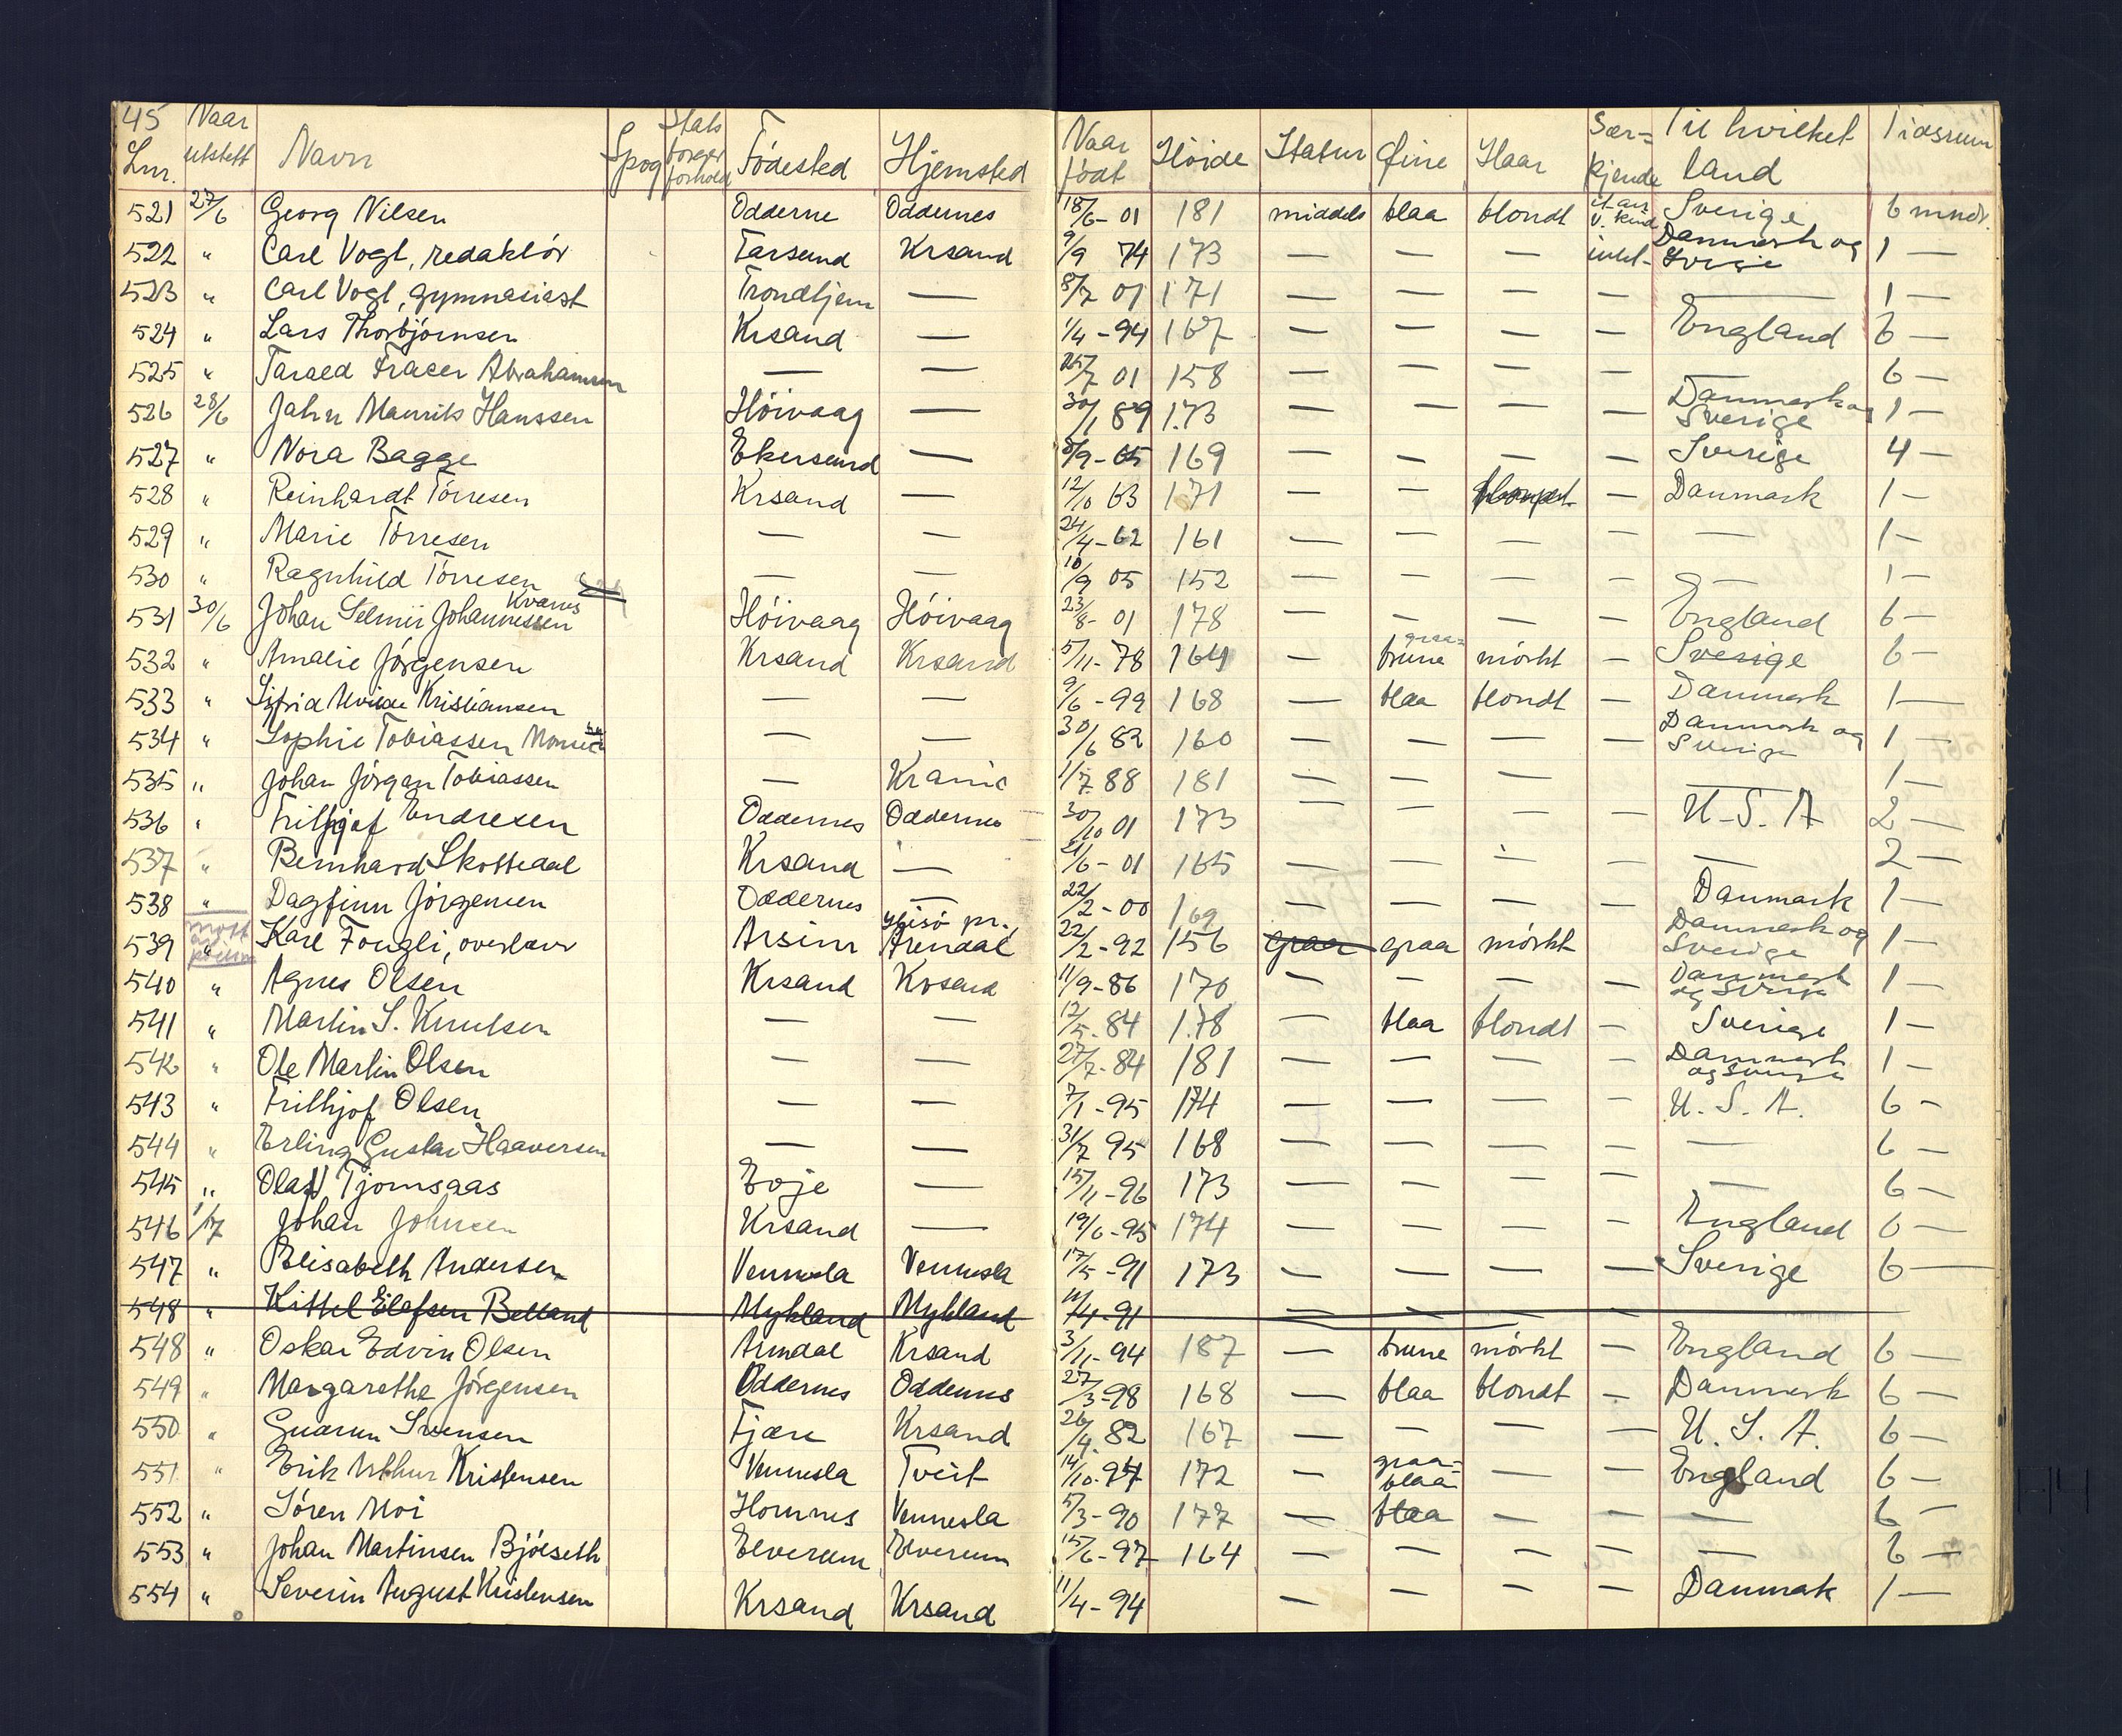 45 Naar Stats Sær= Til hvilket Tidsrum
Lnr. utstett Navn Sprog borger forhold Födested Hjemsted Naar födt Höide Statur Öine Haar kjende land
521 27/6 Georg Nilsen Odderne Oddernes 18/6-01 181 middels blaa blondt et arr v. kind Sverige 6 mndr.
522 " Carl Vogt, redaktör Farsund Krsand 9/9 74 173 — — — intet- Danmark og Sverige 1 —
523 " Carl Vogt, gymnasiast Trondhjem — 8/7 01 171 — — — — — 1 —
524 " Lars Thorbjörnsen Krsand — 1/4-94 167 — — — — England 6 —
525 " Tarald Fraser Abrahamsen — — 01 158 — — — — — 6 —
526 28/6 Jahn Maurits Hanssen Höivaag — 30/1 89 1.73 — — — — Danmark og Sverige 1 —
527 " Nora Bagge Ekersund — 8/9-65 169 — — — — Sverige 4 —
528 " Reinhardt Törresen Krsand — 12/10 63 171 — — — Danmark 1 —
529 " Marie Törresen — — 24/4-62 161 — — — — — 1 —
530 " Ragnhild Törresen — — 10/9 05 152 — — — — — 1 —
531 30/6 Johan Selmer Johannessen Kvarnes Höivaag Höivaag 23/8-01 178 — — — — England 6 —
532 " Amalie Jörgensen Krsand Krsand 5/11-78 164 — graa= brune mörkt — Sverige 6 —
533 " Kristiansen — — 9/6-99 168 — blaa blondt — Danmark 1 —
534 " Sophie Tobiassen — — 30/6 82 160 — — — — Danmark og Sverige 1 —
535 " Johan Jörgen Tobiassen — 1/7 88 181 — — — — 1 —
536 " Frithjof Endresen Oddernes Oddernes 30/10 01 173 — — — — U.S.A 2 —
537 " Bernhard Skottedal Krsand — 21/6-01 165 — — — — — 2 —
538 " Dagfinn Jörgensen Oddernes — 22/2-00 169 — — — — Danmark 1 —
539 " Karl Fougli, overlærer Arsim pr. Arendal 22/2-92 156 graa graa mörkt Danmark og Sverige 1 —
540 " Agnes Olsen Krsand Krsand 11/9-86 170 — — — — Danmark og Sverige 1 —
541 " Martin S. Knutsen — — 12/5-84 1.78 — blaa blondt — Sverige 1 —
542 " Ole Martin Olsen — — 27/7-84 181 — — — — Danmark og Sverige 1 —
543 " Frithjof Olsen — — 7/1-95 174 — — — — U.S.A. 6 —
544 " Erling Gustav Haaversen — — 31/7 95 168 — — — — — 6 —
545 " Olaf Tjomsaas Evje — 15/11-96 173 — — — — — 6 —
546 1/7 Johan Johnsen Krsand — 19/6-95 174 — — — — England 6 —
547 " Elisabeth Andersen Vennesla Vennesla 17/5-91 173 — — — — Sverige 6 —
548 " Kittel Olafsen Belland Mykland Mykland 11/4-91 — — — —
548 " Oskar Edvin Olsen Arendal Krsand 3/11-94 187 — brune mörkt — England 6 —
549 " Margarethe Jörgensen Oddernes Oddernes 27/3-98 168 — blaa blondt — Danmark 6 —
550 " Gudrun Svensen Fjære Krsand 26/4.82 167 — — — — U.S.A. 6 —
551 " Erik Arthur Kristensen Vennesla Tveit 14/10.94 172 — graa= blaa — — England 6 —
552 " Sören Moi Hornnes Vennesla 5/3-90 177 — blaa — — — 6 —
553 " Johan Martinsen Bjölseth Elverum Elverum 15/6-97 164 — — — — — 6 —
554 " Severin August Kristensen Krsand Krsand 11/4-94 — — — — Danmark 1 —